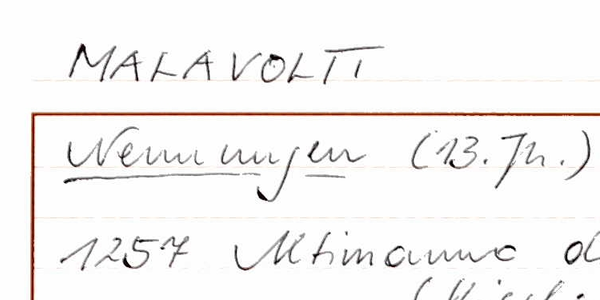 MALAVOLTI
Nennungen (13. Jh.)
1257 Altimanno